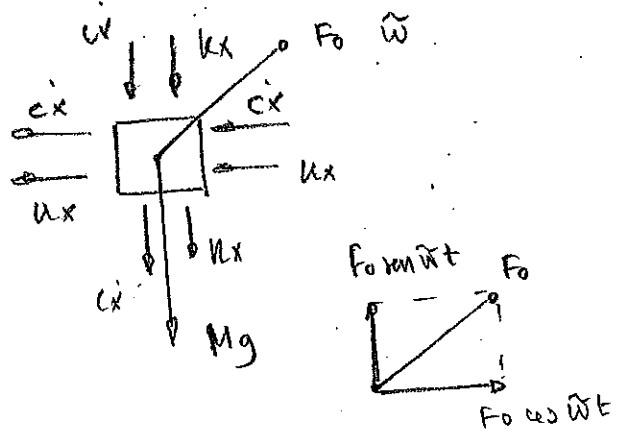 cẋ kx F₀ ω̃
cẋ cẋ
kx kx
cẋ kx
Mg
F₀ sen ω̃t F₀
F₀ cos ω̃t